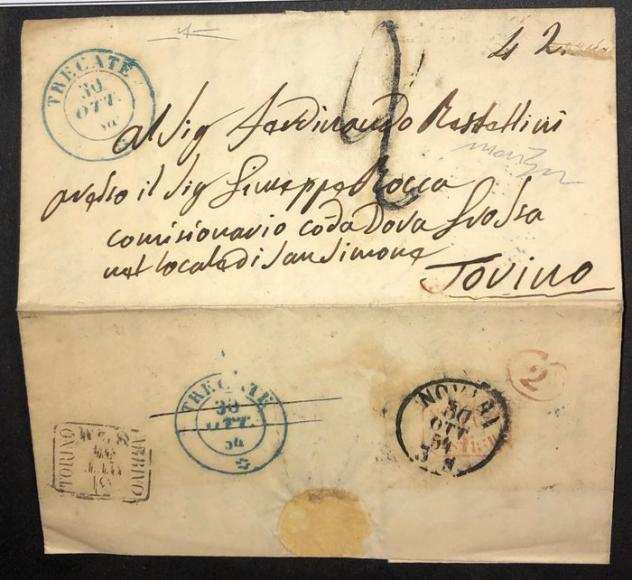 42.
TRECATE
30
OTT.
54
2
Al Sig Ferdinando Rastellini
presso il Sig Giuseppe Rocca
comisionario codadova Grossa
nel locale di San Simone
Torino
TRECATE
30
OTT.
54
NOVARA
30
OTT
54
2
ARRIVO
31
OTT
54
TORINO